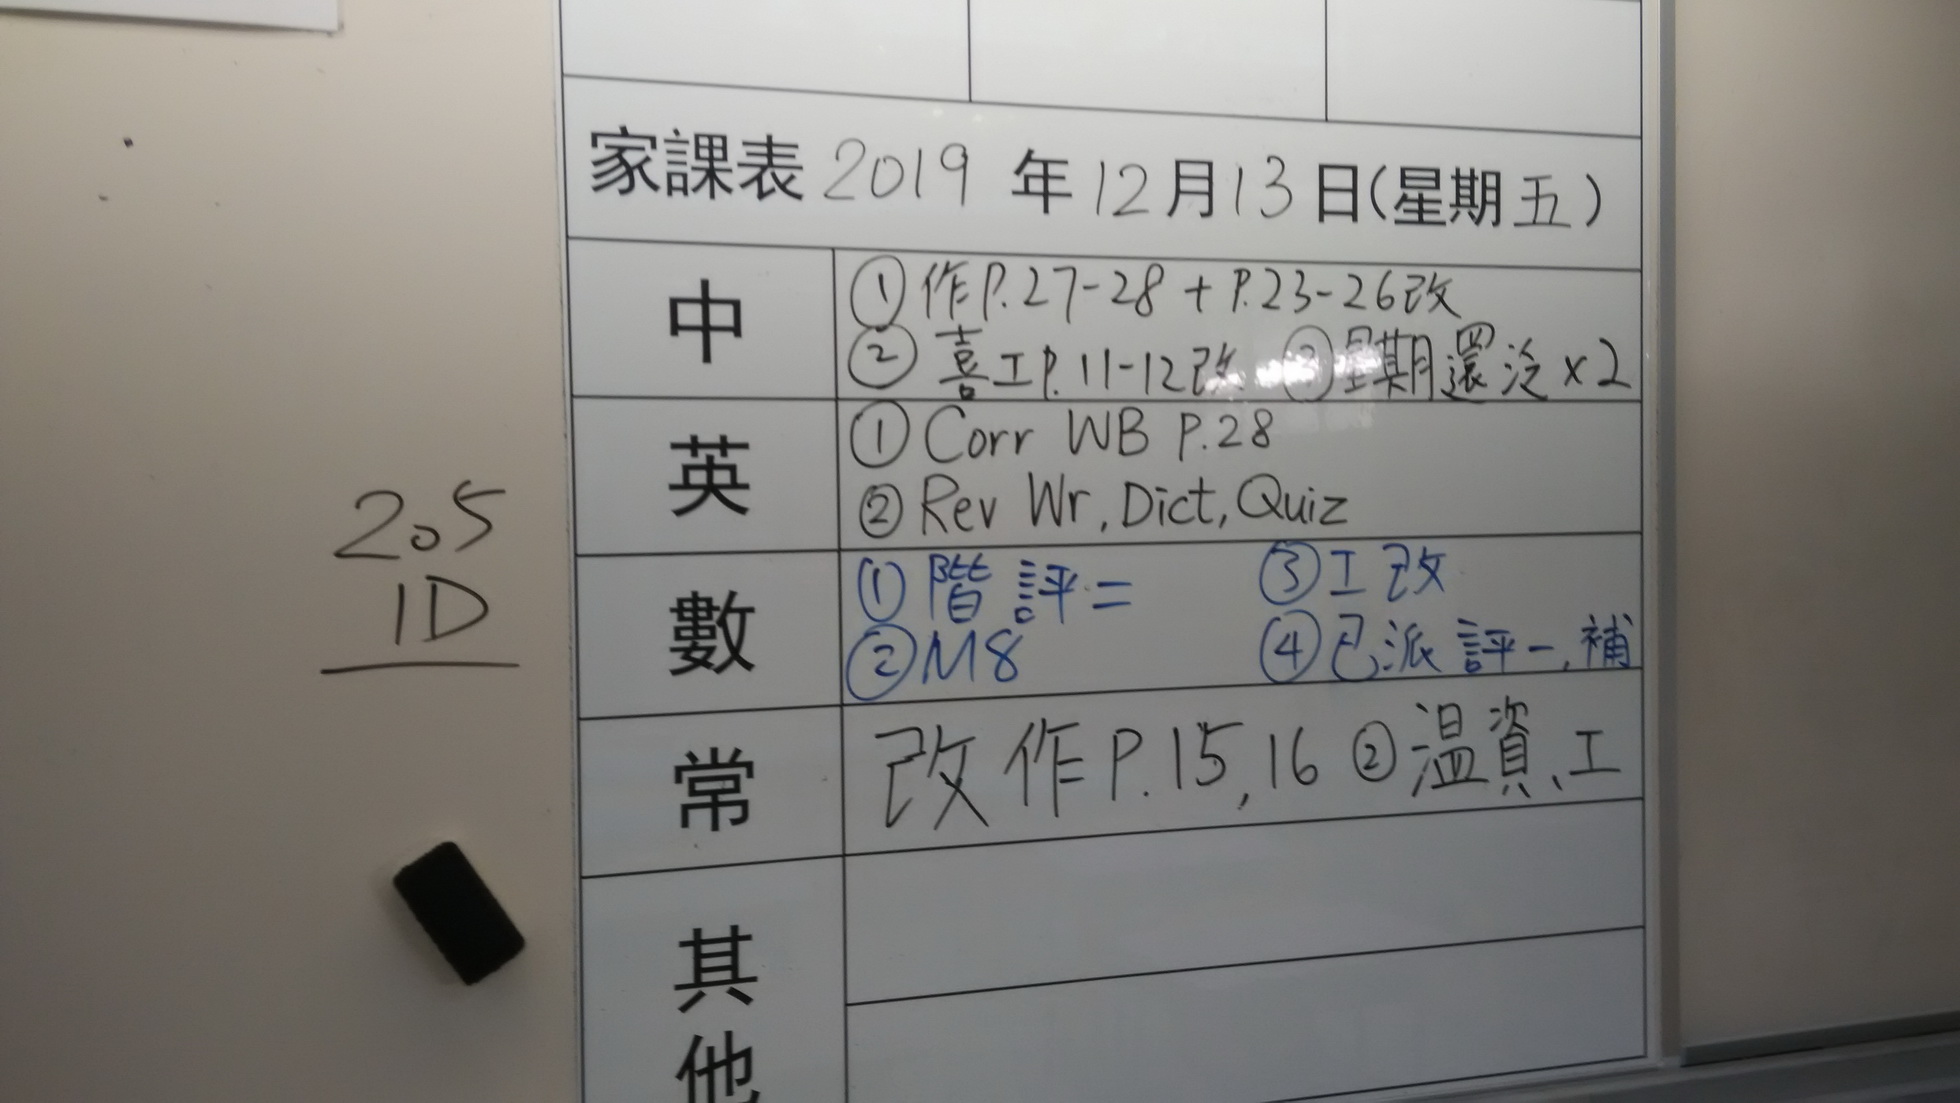 家課表 2019 年 12 月 13 日(星期五)
中
① 作P.27-28 + P.23-26改
② 喜工P.11-12改 ③ 星期還沒 x2
英
① Corr WB P.28
② Rev Wr, Dict, Quiz
數
① 階評二 ③ 工改
② M8 ④ 已派評一, 補
常
改作P.15,16 ② 温資、工
其他
205
1D